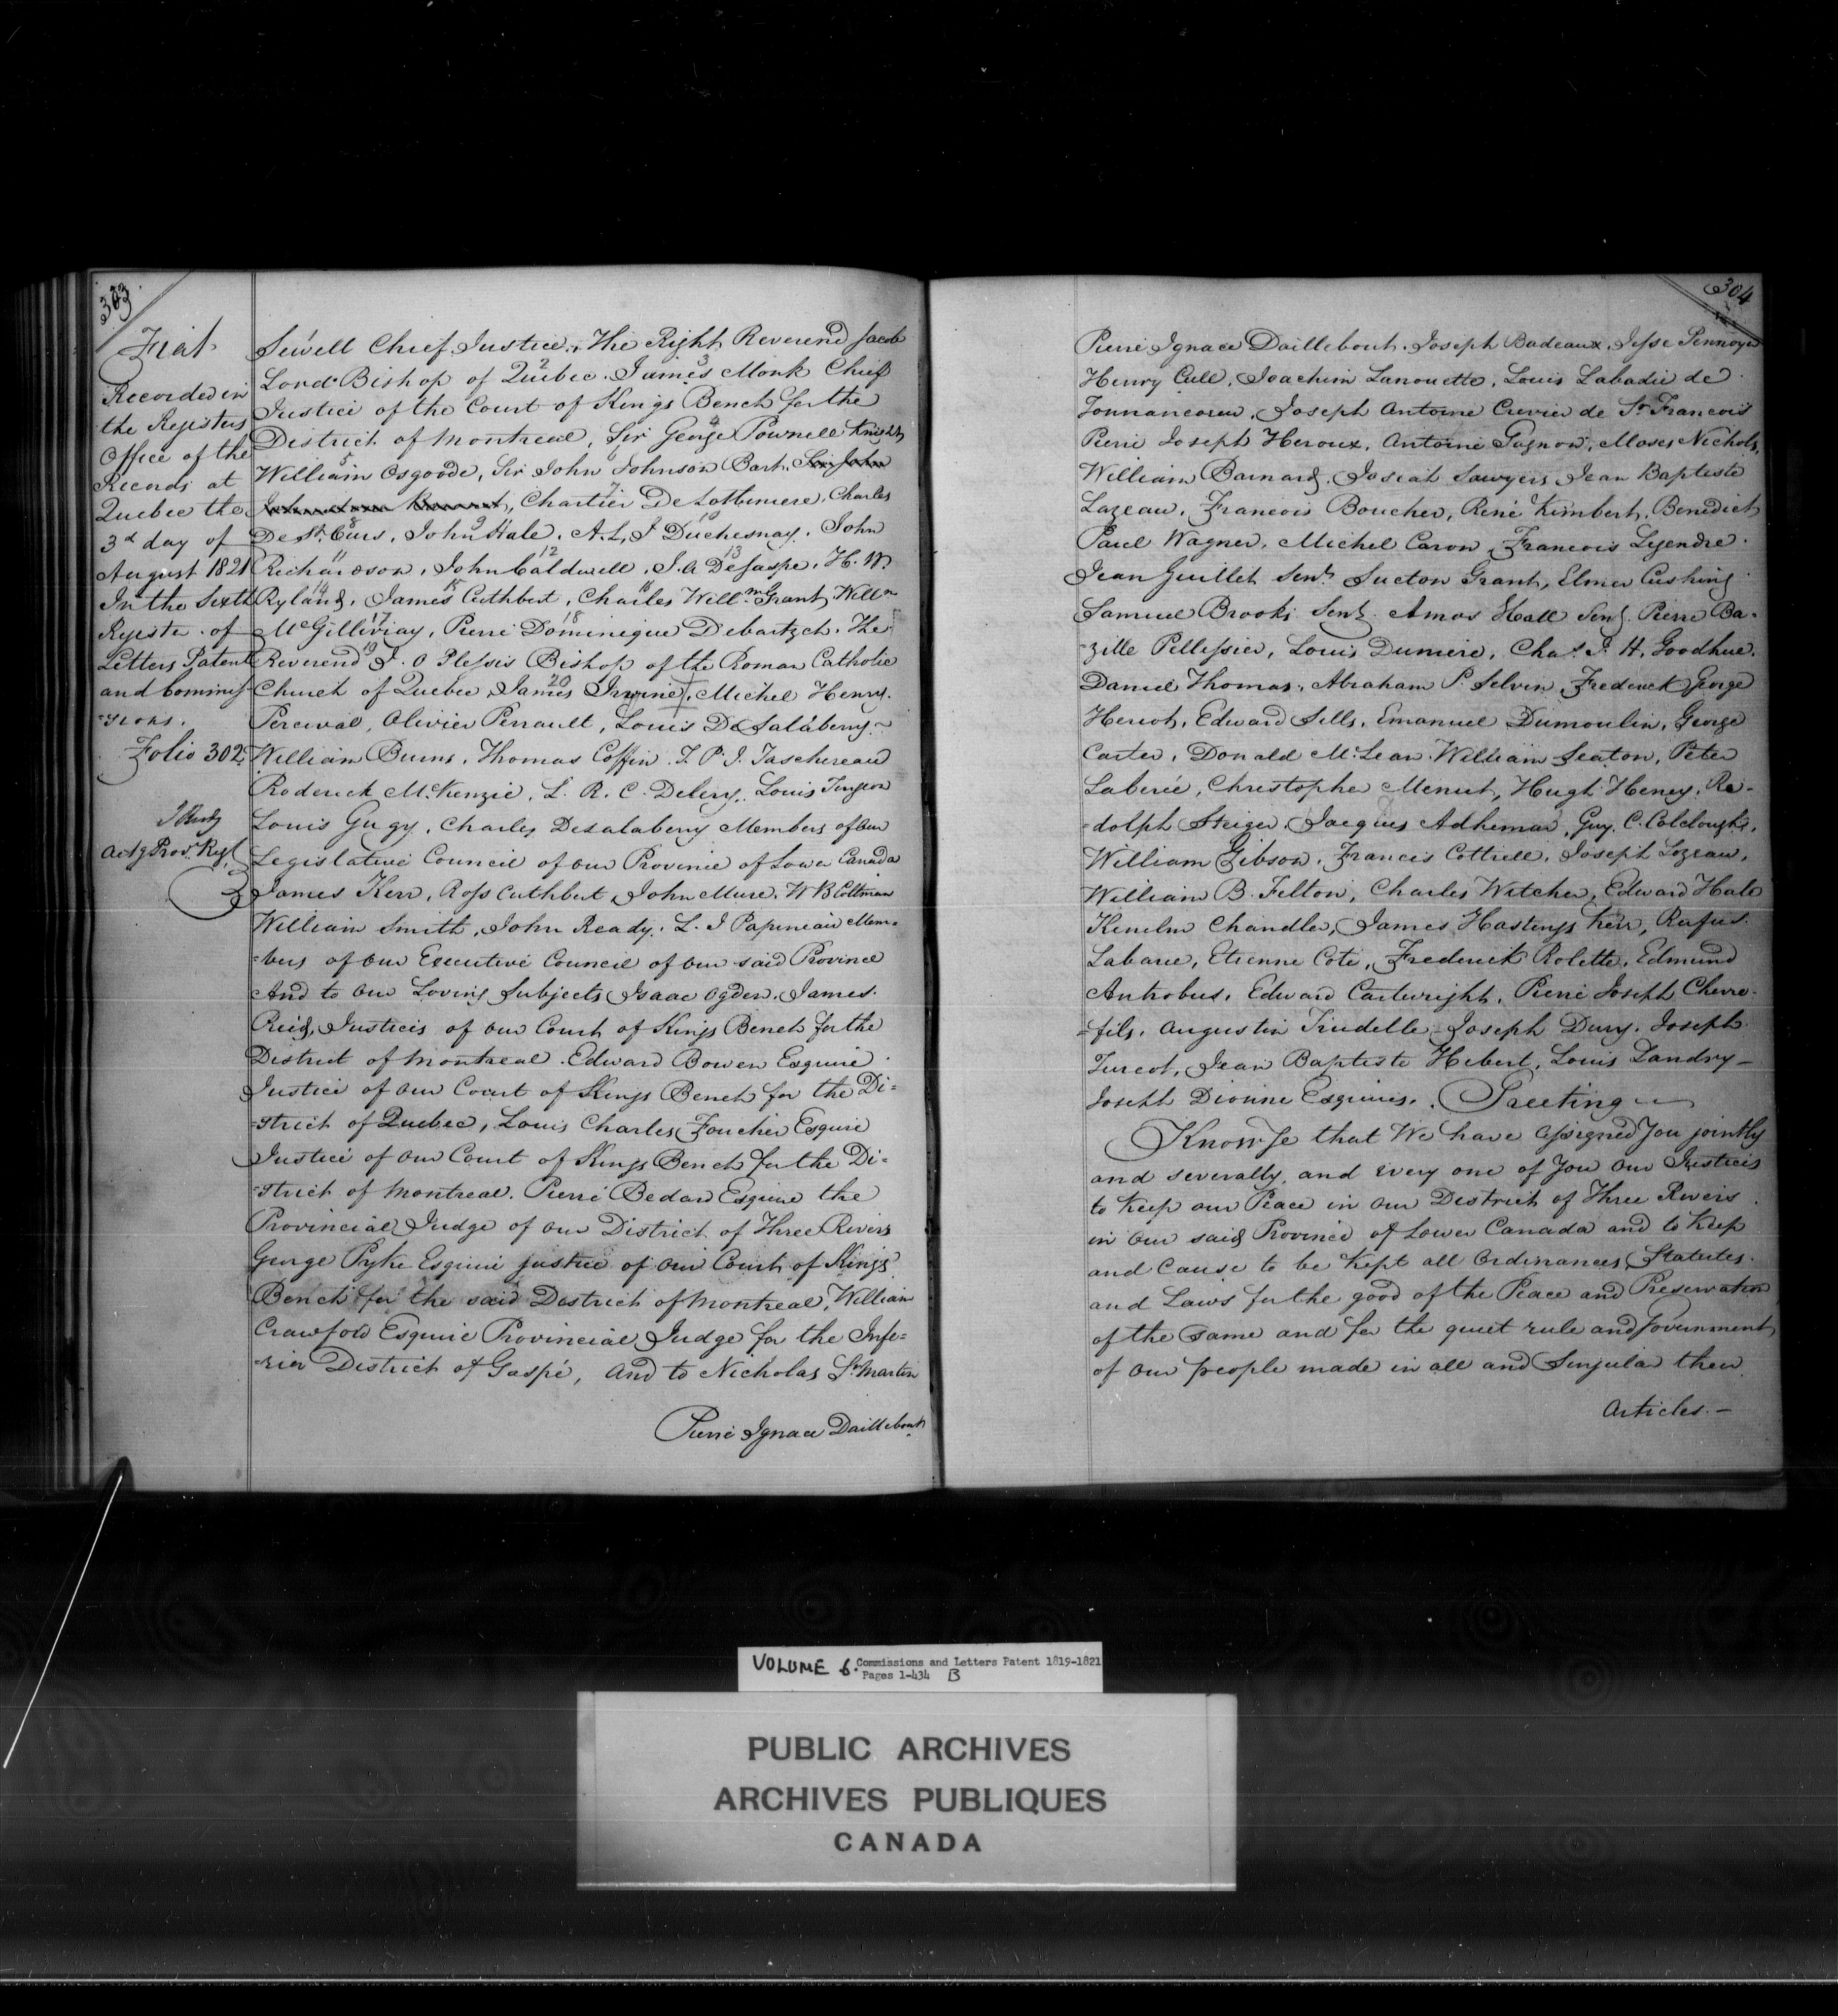 303
Fiat
Recorded in
the Registers
Office of the
Records at
Quebec the
3d day of
August 1821
In the Sixth
Register of
Letters Patent
and Commis-
=sions.
Folio 302
Actg Prov. Regr
Sewell Chief Justice, The Right Reverend Jacob
Lord Bishop of Quebec, James Monk Chief
Justice of the Court of Kings Bench for the
District of Montreal, Sir George Pownell Knight
William Osgoode, Sir John Johnson Bart, Sir John
Chartier De Lotbiniere, Charles
De St. Ours, John Hale, A. L. J Duchesnay, John
Richardson, John Caldwell, I. A DeGaspe, H. W
Ryland, James Cuthbert, Charles Willm Grant, Willm
McGillivray, Pierre Dominique Debartzch, The
Reverend J. O Plessis Bishop of the Roman Catholic
Church of Quebec, James Irvine, Michel Henry
Percival, Olivier Perrault, Louis De Salaberry
William Burns, Thomas Coffin, T. P. J. Taschereau
Roderick McKenzie, L. R. C. Delery, Louis Turgeon
Louis Gugy, Charles Desalaberry Members of Our
Legislative Council of our Province of Lower Canada
James Kerr, Ross Cuthbert, John Mure, W B Coltman
William Smith, John Ready, L. J Papineau Mem-
=bers of Our Executive Council of our said Province
And to Our Loving Subjects Isaac Ogden, James
Reid, Justices of our Court of Kings Bench for the
District of Montreal, Edward Bowen Esquire
Justice of our Court of Kings Bench for the Di=
=strict of Quebec, Louis Charles Foucher Esquire
Justice of our Court of Kings Bench for the Di=
=strict of Montreal, Pierre Bedard Esquire the
Provincial Judge of our District of Three Rivers
George Pyke Esquire justice of our Court of Kings
Bench for the said District of Montreal, William
Crawford Esquire Provincial Judge for the Infe=
=rior District of Gaspé, And to Nicholas St. Martin
Pierre Ignace Daillebout
304
Pierre Ignace Daillebout, Joseph Badeaux, Jesse Pennoyer
Henry Cull, Joachim Lanouette, Louis Labadie de
Tonnancour, Joseph Antoine Crevier de St. Francois
Pierre Joseph Heroux, Antoine Gagnon, Moses Nichols,
William Barnard, Josiah Sawyers Jean Baptiste
Lozeau, Francois Boucher, René Kimbert, Benedict
Paul Wagner, Michel Caron, Francois Legendre
Jean Guillet Senr. Sueton Grant, Elmer Cushing
Samuel Brooks Senr. Amos Hall Senr. Pierre Ba-
-zille Pellissier, Louis Dumiere, Chas. F. H. Goodhue,
Daniel Thomas, Abraham P. Selvin, Frederick George
Heriot, Edward Sills, Emanuel Dumoulin, George
Carter, Donald McLean, William Seaton, Peter
Laberée, Christopher Menut, Hugh Heney, Ro-
-dolph Steiger, Jacques Adhemar, Guy. C. Colclough,
William Gibson, Francis Cottrell, Joseph Lozeau,
William B. Felton, Charles Witcher, Edward Hale
Kenelm Chandler, James Hastings Kerr, Rufus
Labaree, Etienne Coté, Frederick Rolette, Edmund
Antrobus, Edward Cartwright, Pierre Joseph Chevre-
=fils, Augustin Trudelle, Joseph Dury, Joseph
Turcot, Jean Baptiste Hebert, Louis Landry
Joseph Dionne Esquires. Greeting
Know Ye that We have assigned You jointly
and severally, and every one of You Our Justices
to keep our Peace in our District of Three Rivers
in Our said Province of Lower Canada and to keep
and cause to be kept all Ordinances, Statutes
and Laws for the good of the Peace and Preservation
of the same and for the quiet rule and Government
of our people made in all and Singular their
Articles.-
VOLUME 6. Commissions and Letters Patent 1819-1821
Pages 1-434 B
PUBLIC ARCHIVES
ARCHIVES PUBLIQUES
CANADA